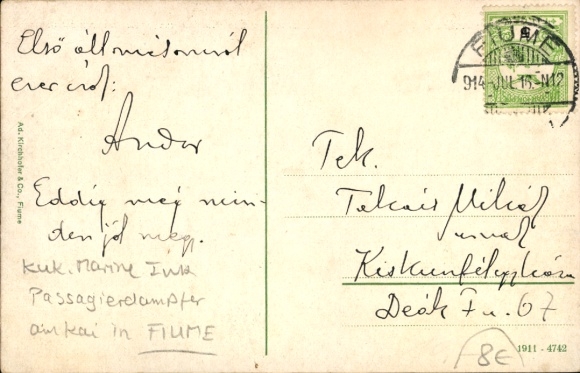 Első állomásomról
ezer csók:
Andor
Eddig még min-
den jól megy.
kuk. Marine
Passagierdampfer
am kai in FIUME
Ad. Kirchhofer & Co., Fiume
FIUME
914 JUL 16. N12
Tek.
Takács Mihály
urnak
Kiskunfélegyháza
Deák F. u. 67
8€
1911 - 4742